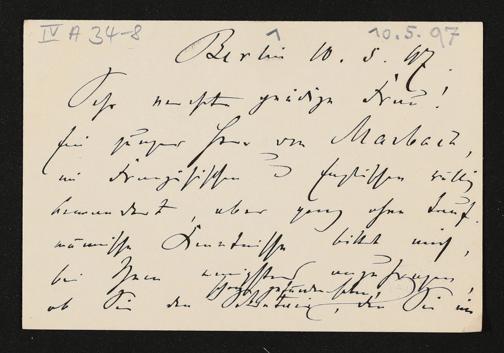 IV A 34-8 1 10.5.97
Berlin 10. 5. 97.
Sehr verehrte gnädige Frau!
Ein junger Herr von Marbach,
im Französischen u Englischen völlig
bewandert, aber ganz ohne kauf-
männische Kenntnisse bittet mich,
bei Ihnen anzufragen,
schon gefunden haben,
ob Sie den Sekretär, den Sie im